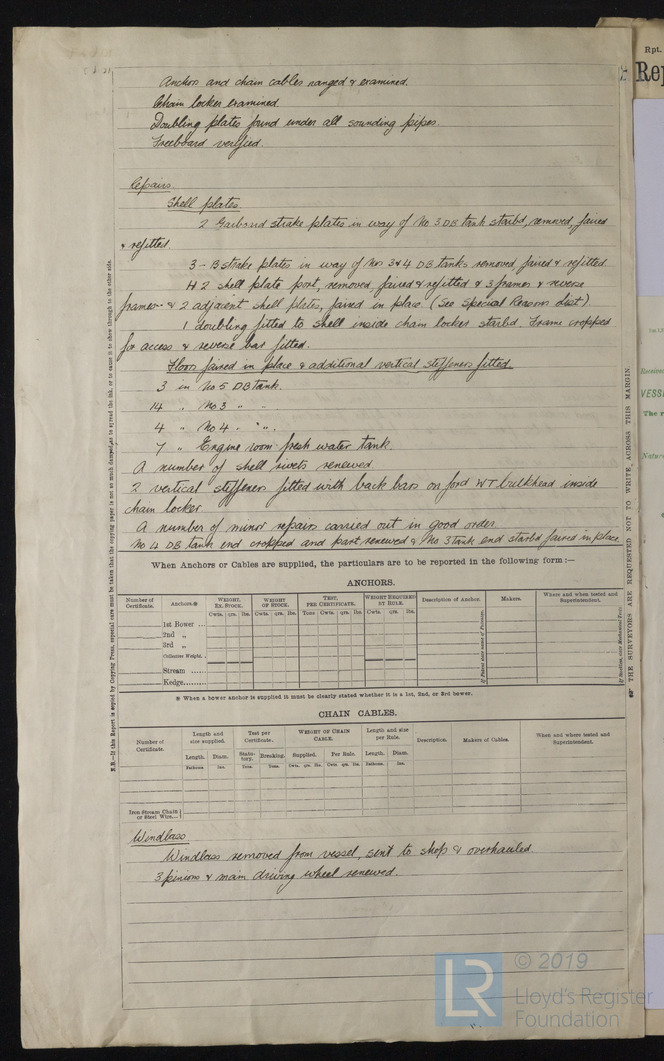 Anchors and chain cables ranged & examined.
Chain locker examined.
Doubling plates found under all sounding pipes.
Freeboard verified.
Repairs
Shell plates
2 Garboard strake plates in way of No 3 DB tank starbd, removed, faired
& refitted.
3 - B strake plates in way of Nos 3 & 4 DB tanks removed, faired & refitted
H 2 shell plate port, removed faired & refitted & 3 frames & reverse
frames & 2 adjacent shell plates, faired in place. (See Special Reasons List)
1 doubling fitted to shell inside chain locker starbd. Frame cropped
for access & reverse bar fitted.
Floors faired in place & additional vertical stiffeners fitted.
3 in No 5 DB tank.
14 " No 3 " "
4 " No 4 . " " .
7 " Engine room fresh water tank.
A number of shell rivets renewed
2 vertical stiffeners fitted with back bars on ford WT bulkhead inside
chain locker
A number of minor repairs carried out in good order.
No 4 DB tank end cropped and part renewed & No 3 tank end starbd faired in place
When Anchors or Cables are supplied, the particulars are to be reported in the following form :—
ANCHORS.
Number of Certificate. Anchors.* WEIGHT, EX. STOCK. WEIGHT OF STOCK. TEST, PER CERTIFICATE. WEIGHT REQUIRED BY RULE. Description of Anchor. Makers. Where and when tested and Superintendent.
Cwts. qrs. lbs. Cwts. qrs. lbs. Tons Cwts. qrs. lbs. Cwts. qrs. lbs.
1st Bower ...
2nd "
3rd "
Collective Weight.
Stream ......
Kedge.........
If Patent state name of Patentee.
* When a bower anchor is supplied it must be clearly stated whether it is a 1st, 2nd, or 3rd bower.
CHAIN CABLES.
Number of Certificate. Length and size supplied. Test per Certificate. WEIGHT OF CHAIN CABLE. Length and size per Rule. Description. Makers of Cables. When and where tested and Superintendent.
Length. Diam. Statutory. Breaking. Supplied. Per Rule. Length. Diam.
Fathoms. Ins. Tons. Tons. Cwts. qrs. lbs. Cwts. qrs. lbs. Fathoms. Ins.
Iron Stream Chain or Steel Wire...
Windlass
Windlass removed from vessel, sent to shop & overhauled.
3 pinions & main driving wheel renewed.
THE SURVEYORS ARE REQUESTED NOT TO WRITE ACROSS THIS MARGIN.
Rpt.
Rep
Received
VESSE
The r
Natur
LR
© 2019
Lloyd's Register
Foundation